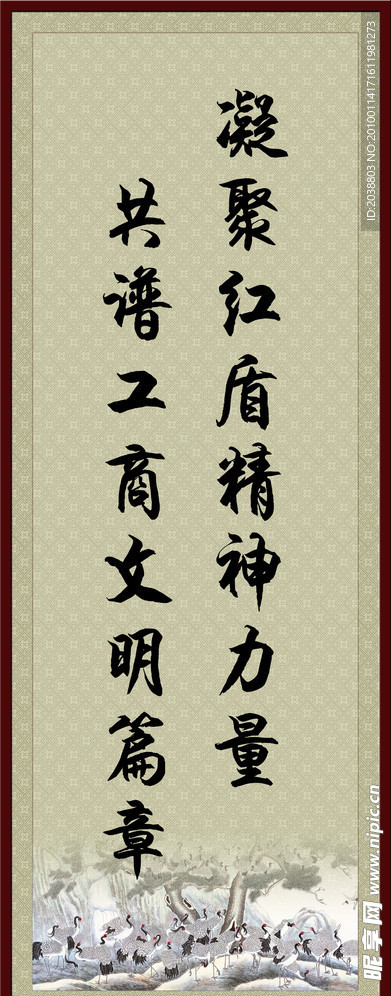 凝聚红盾精神力量
共谱工商文明篇章
ID:2038803 NO:20100114171611981273
昵享网 www.nipic.cn